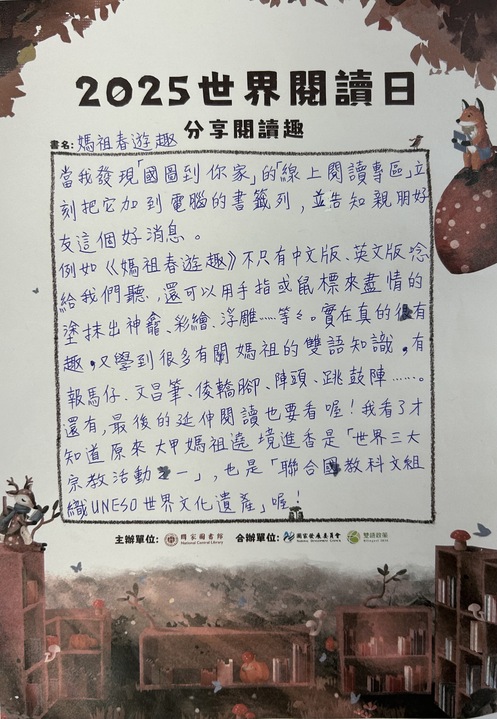 2025世界閱讀日
分享閱讀趣
書名: 媽祖春遊趣
當我發現「國圖到你家」的「線上閱讀專區」立
刻把它加到電腦的書籤列，並告知親朋好
友這個好消息。
例如《媽祖春遊趣》不只有中文版、英文版唸
給我們聽，還可以用手指或鼠標來盡情的
塗抹出神龕、彩繪、浮雕……等々。實在真的有
趣，又學到很多有關媽祖的雙語知識，有
報馬仔、文昌筆、倰轎腳、陣頭、跳鼓陣……。
還有，最後的延伸閱讀也要看喔！我看了才
知道原來大甲媽祖遶境進香是「世界三大
宗教活動之一」，也是「聯合國教科文組
織UNESO世界文化遺產」喔！
主辦單位: 國家圖書館 National Central Library 合辦單位: 國家發展委員會 雙語政策